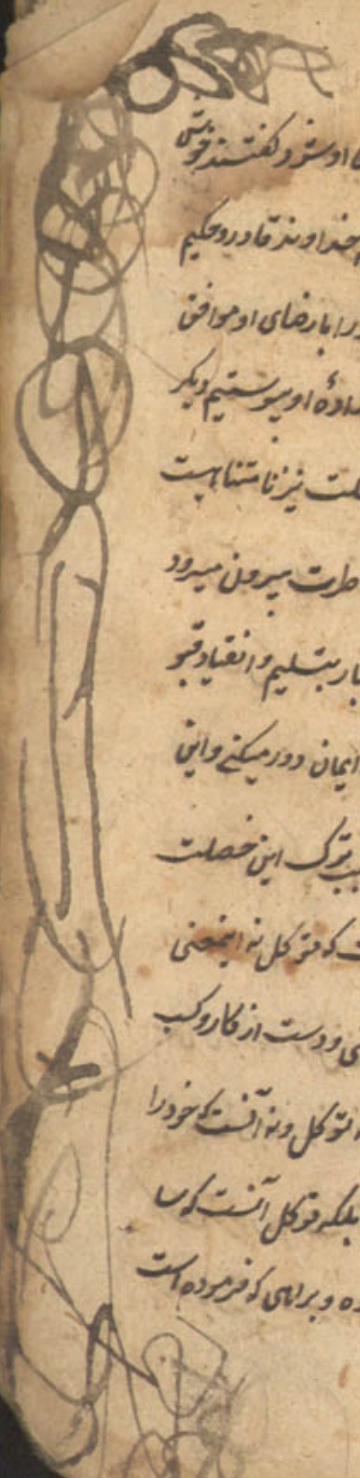 او شو و گفتند خویشی
خداوند قادر و حکیم
را بارهای او موافق
او پیوستیم دیگر
نیز نامتناهیست
بیرون میرود
بتسلیم و انقیاد
ایمان دور میکنی و این
ترک این خصلت
که توکل نه اینمعنی
و دست از کار و کسب
توکل و نه آنست که خود را
بلکه توکل آنست که
و براهی که فرموده است